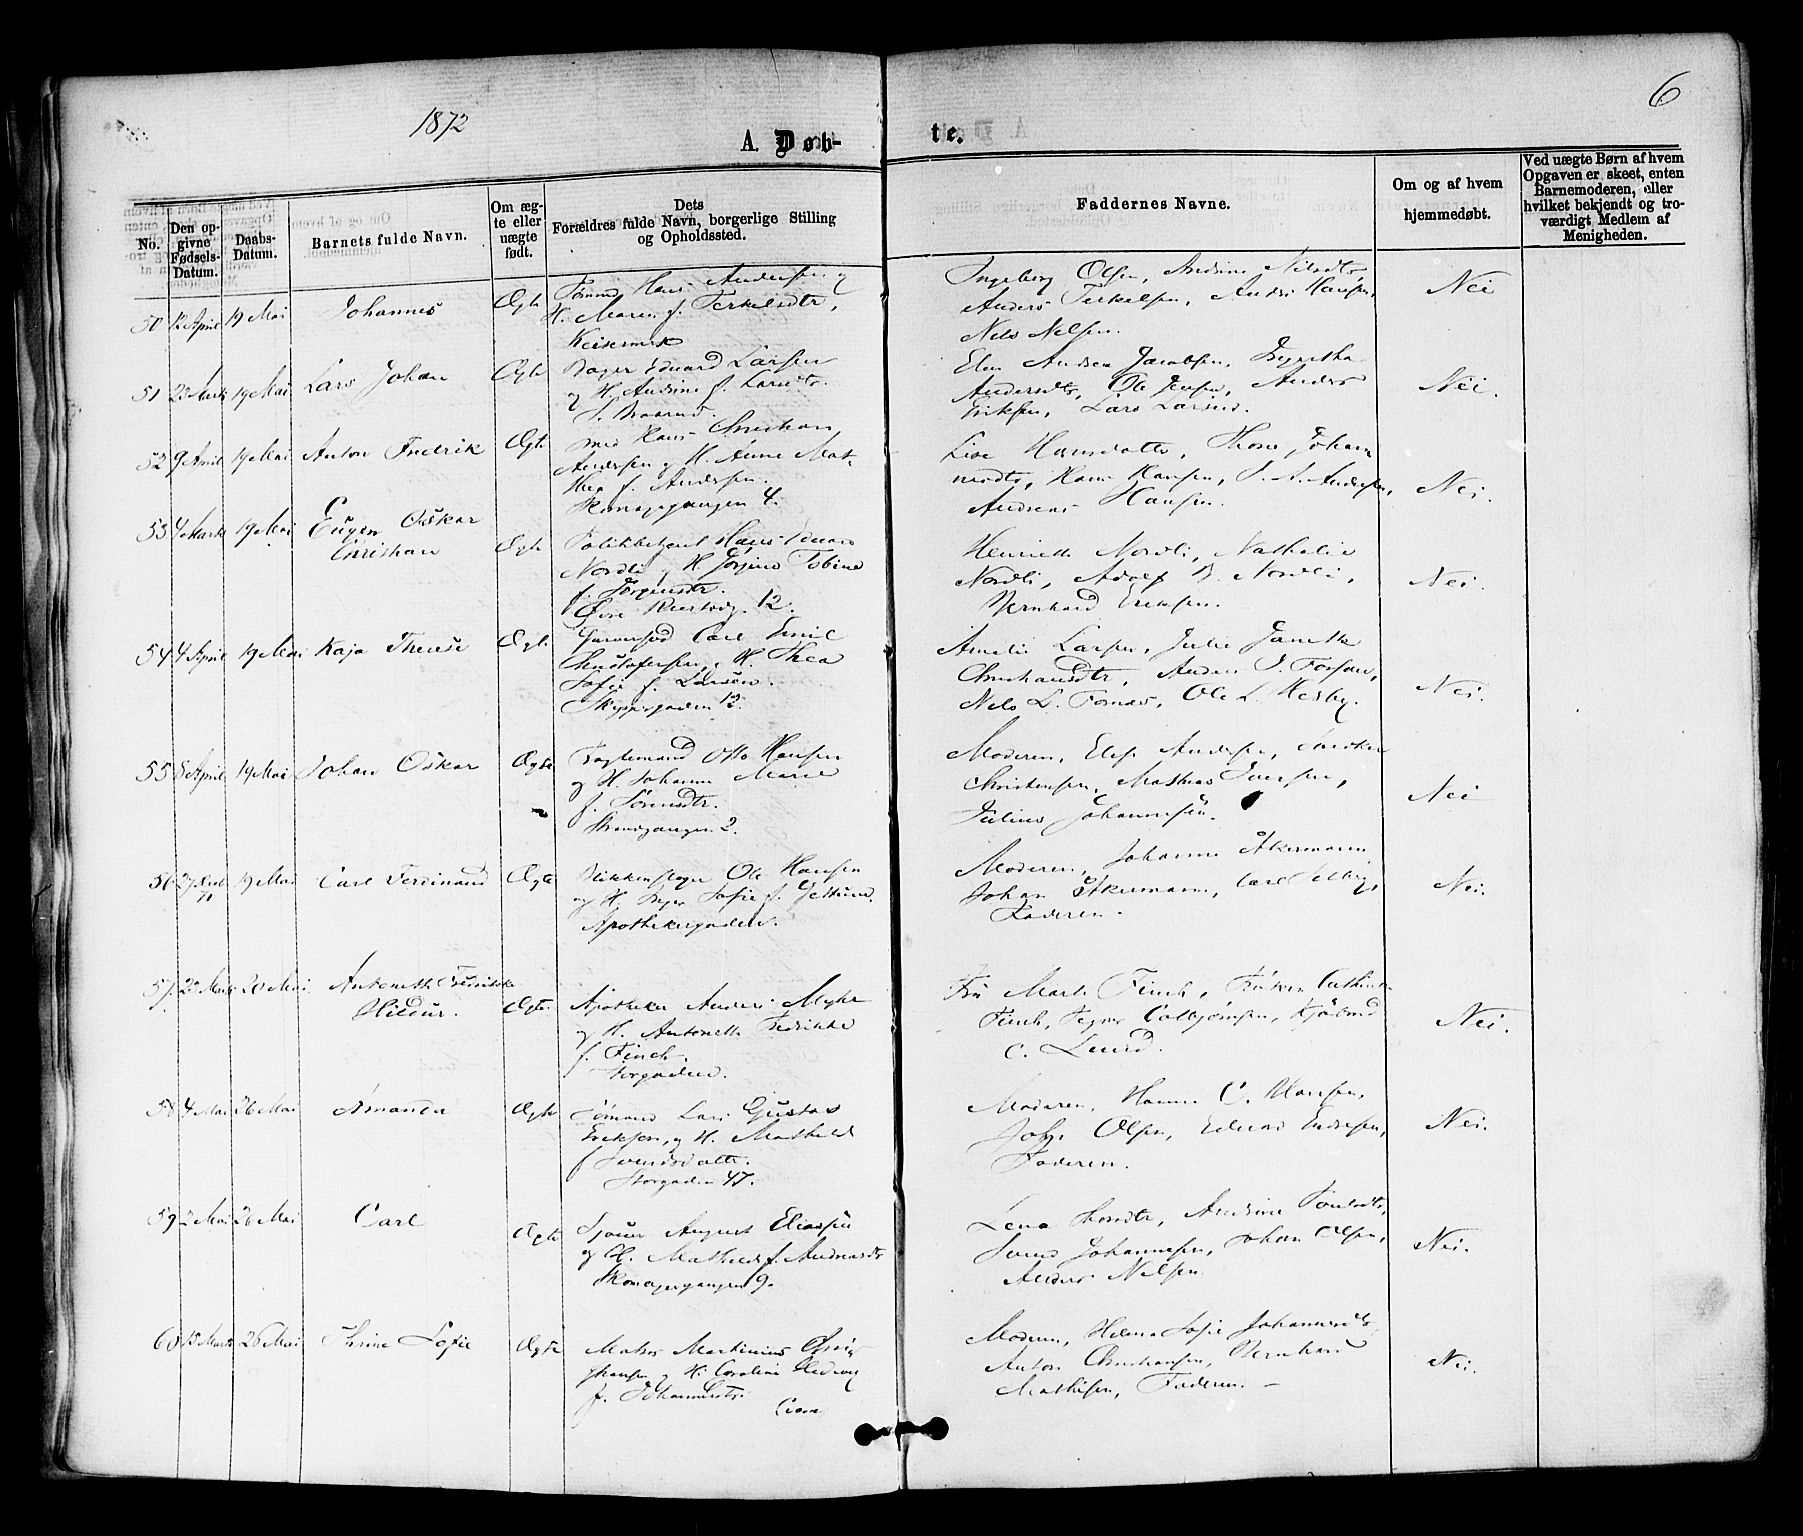 1872
6
A. Døb-
te.
No.
Den op-
givne
Fødsels-
Datum.
Daabs-
Datum.
Barnets fulde Navn.
Om æg-
te eller
uægte
født.
Dets
Forældres fulde Navn, borgerlige Stilling
og Opholdssted.
Faddernes Navne.
Om og af hvem
hjemmedøbt.
Ved uægte Børn af hvem
Opgaven er skeet, enten
Barnemoderen, eller
hvilket bekjendt og tro-
værdigt Medlem af
Menigheden.
50 12 April 19 Mai Johannes Ægte
Tømmd Hans Andersen og
H. Maren f. Terkelsdtr,
Ingeborg Olsen, Andrine Nilsdtr
Anders Terkelsen, Hansen,
Nels Nelsen.
Nei
51 19 Mai Lars Johan Ægte
Bager Eduard Larsen
og H. Andrine f. Larsdtr.
Elen Andrea Jacobsen,
Andersdtr, Ole Jensen, Anders
Eriksen, Lars Larsen.
Nei.
52 9 April 19 Mai Anton Fredrik Ægte
Hans Christian
Andersen og H. Anne Mat-
thea f. Andersen.
Skomagergangen 4.
Live Hansdatter, Thone Johan-
nesdtr, Hans Hansen, Andersen,
Andreas Hansen.
Nei.
53 4 Marts 19 Mai Eugen Oskar
Christian Ægte
Politibetjent Hans Eduard
Nordli og H. Jørgine Tobine
f. Jørgensdtr.
Øvre 12.
Henriette Nordli, Nathalie
Nordli, Adolf B. Nordli,
Bernhard Eriksen.
Nei.
54 4 April 19 Mai Kaja Therese Ægte
Garversvd Carl Emil
Christofersen, H. Thea
Sofie f. Larsen.
Skippergaden 12.
Amalie Larsen, Julie Janette
Christiansdtr, Anders
Nels L. Fornæs, Ole L. Hesby.
Nei.
55 8 April 19 Mai Johan Oskar Ægte
Otto Hansen
og H. Johanne Marie
f. Sørensdtr.
Strandgangen 2.
Moderen, Elise Andersen,
Christensen, Mathias Iversen,
Julius Johannesen.
Nei
56 19 Mai Carl Ferdinand Ægte
Blikkenslager Ole Hansen
og H. Sofie f.
Apothekergaden.
Moderen, Johanne Åkermann,
Johan Åkermann, Carl
Faderen.
Nei.
57 20 Mai Antonette Fredrikke
Hildur. Ægte
Apotheker Anders Myhre
og H. Antonette Fredrikke
f. Finch.
Torgaden.
Fru Marte Finch, Frøken Cathinca
Finch, Colbjørnsen, Kjøbmd
C. Lund.
Nei.
58 4 Mai 26 Mai Amanda Ægte
Sømand Lars Gustav
Eriksen, og H. Mathilde
f. Svendsdatter.
Storgaden 47.
Moderen, Hanne C. Hansen,
John Olsen, Eduard Endresen,
Faderen.
Nei.
59 2 Mai 26 Mai Carl Ægte
August Eliassen
og H. Mathilde f. Andreasdtr
Skomagergangen 9.
Lena Thordtr, Andrine
Svend Johannesen, Johan Olsen,
Anders Nelsen.
Nei.
60 15 Marts 26 Mai Thrine Sofie Ægte
Matros Martinius
og H. Caroline Hedvig
f. Johannesdtr.
Moderen, Helene Sofie Johannesdtr,
Anton Christiansen, Bernhard
Mathisen, Faderen.
Nei.